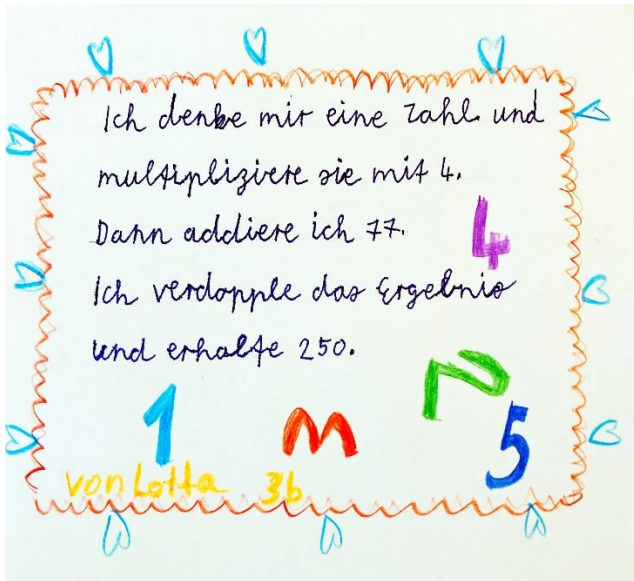 Ich denke mir eine Zahl und
multipliziere sie mit 4.
Dann addiere ich 77.
4
Ich verdopple das Ergebnis
und erhalte 250.
1 3 2 5
von Lotta 3b